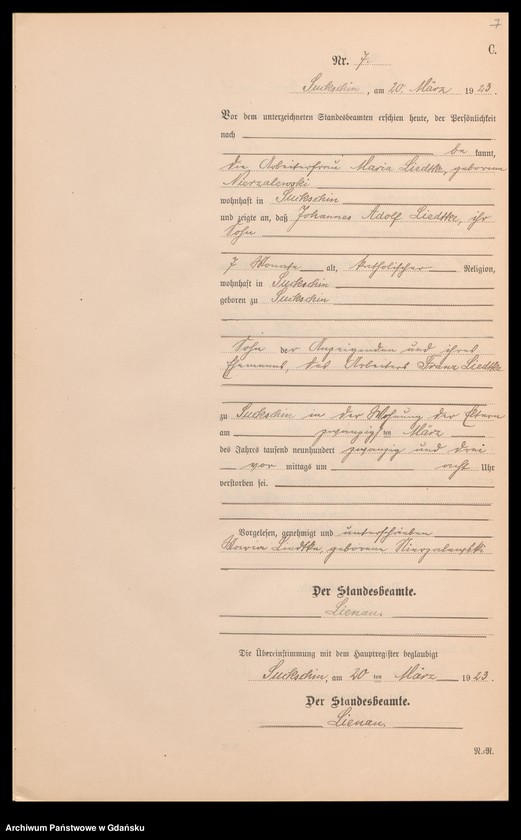 7
C.
Nr. 7.
Suckschin, am 20. März 1923.
Vor dem unterzeichneten Standesbeamten erschien heute, der Persönlichkeit
nach
be kannt,
die Arbeiterfrau Maria Liedtke, geborene
Nierzalewski
wohnhaft in Suckschin
und zeigte an, daß Johannes Adolf Liedtke, ihr
Sohn
7 Monate alt, katholischer Religion,
wohnhaft in Suckschin
geboren zu Suckschin
Sohn der Anzeigenden und ihres
Ehemanns, des Arbeiters Franz Liedtke
zu Suckschin in der Wohnung der Eltern
am zwanzigsten März
des Jahres tausend neunhundert zwanzig und drei
vor mittags um acht Uhr
verstorben sei.
Vorgelesen, genehmigt und unterschrieben
Maria Liedtke, geborene Nierzalewski
Der Standesbeamte.
Lienau.
Die Übereinstimmung mit dem Hauptregister beglaubigt
Suckschin, am 20 ten März 1923.
Der Standesbeamte.
Lienau.
N.-R.
Archiwum Państwowe w Gdańsku